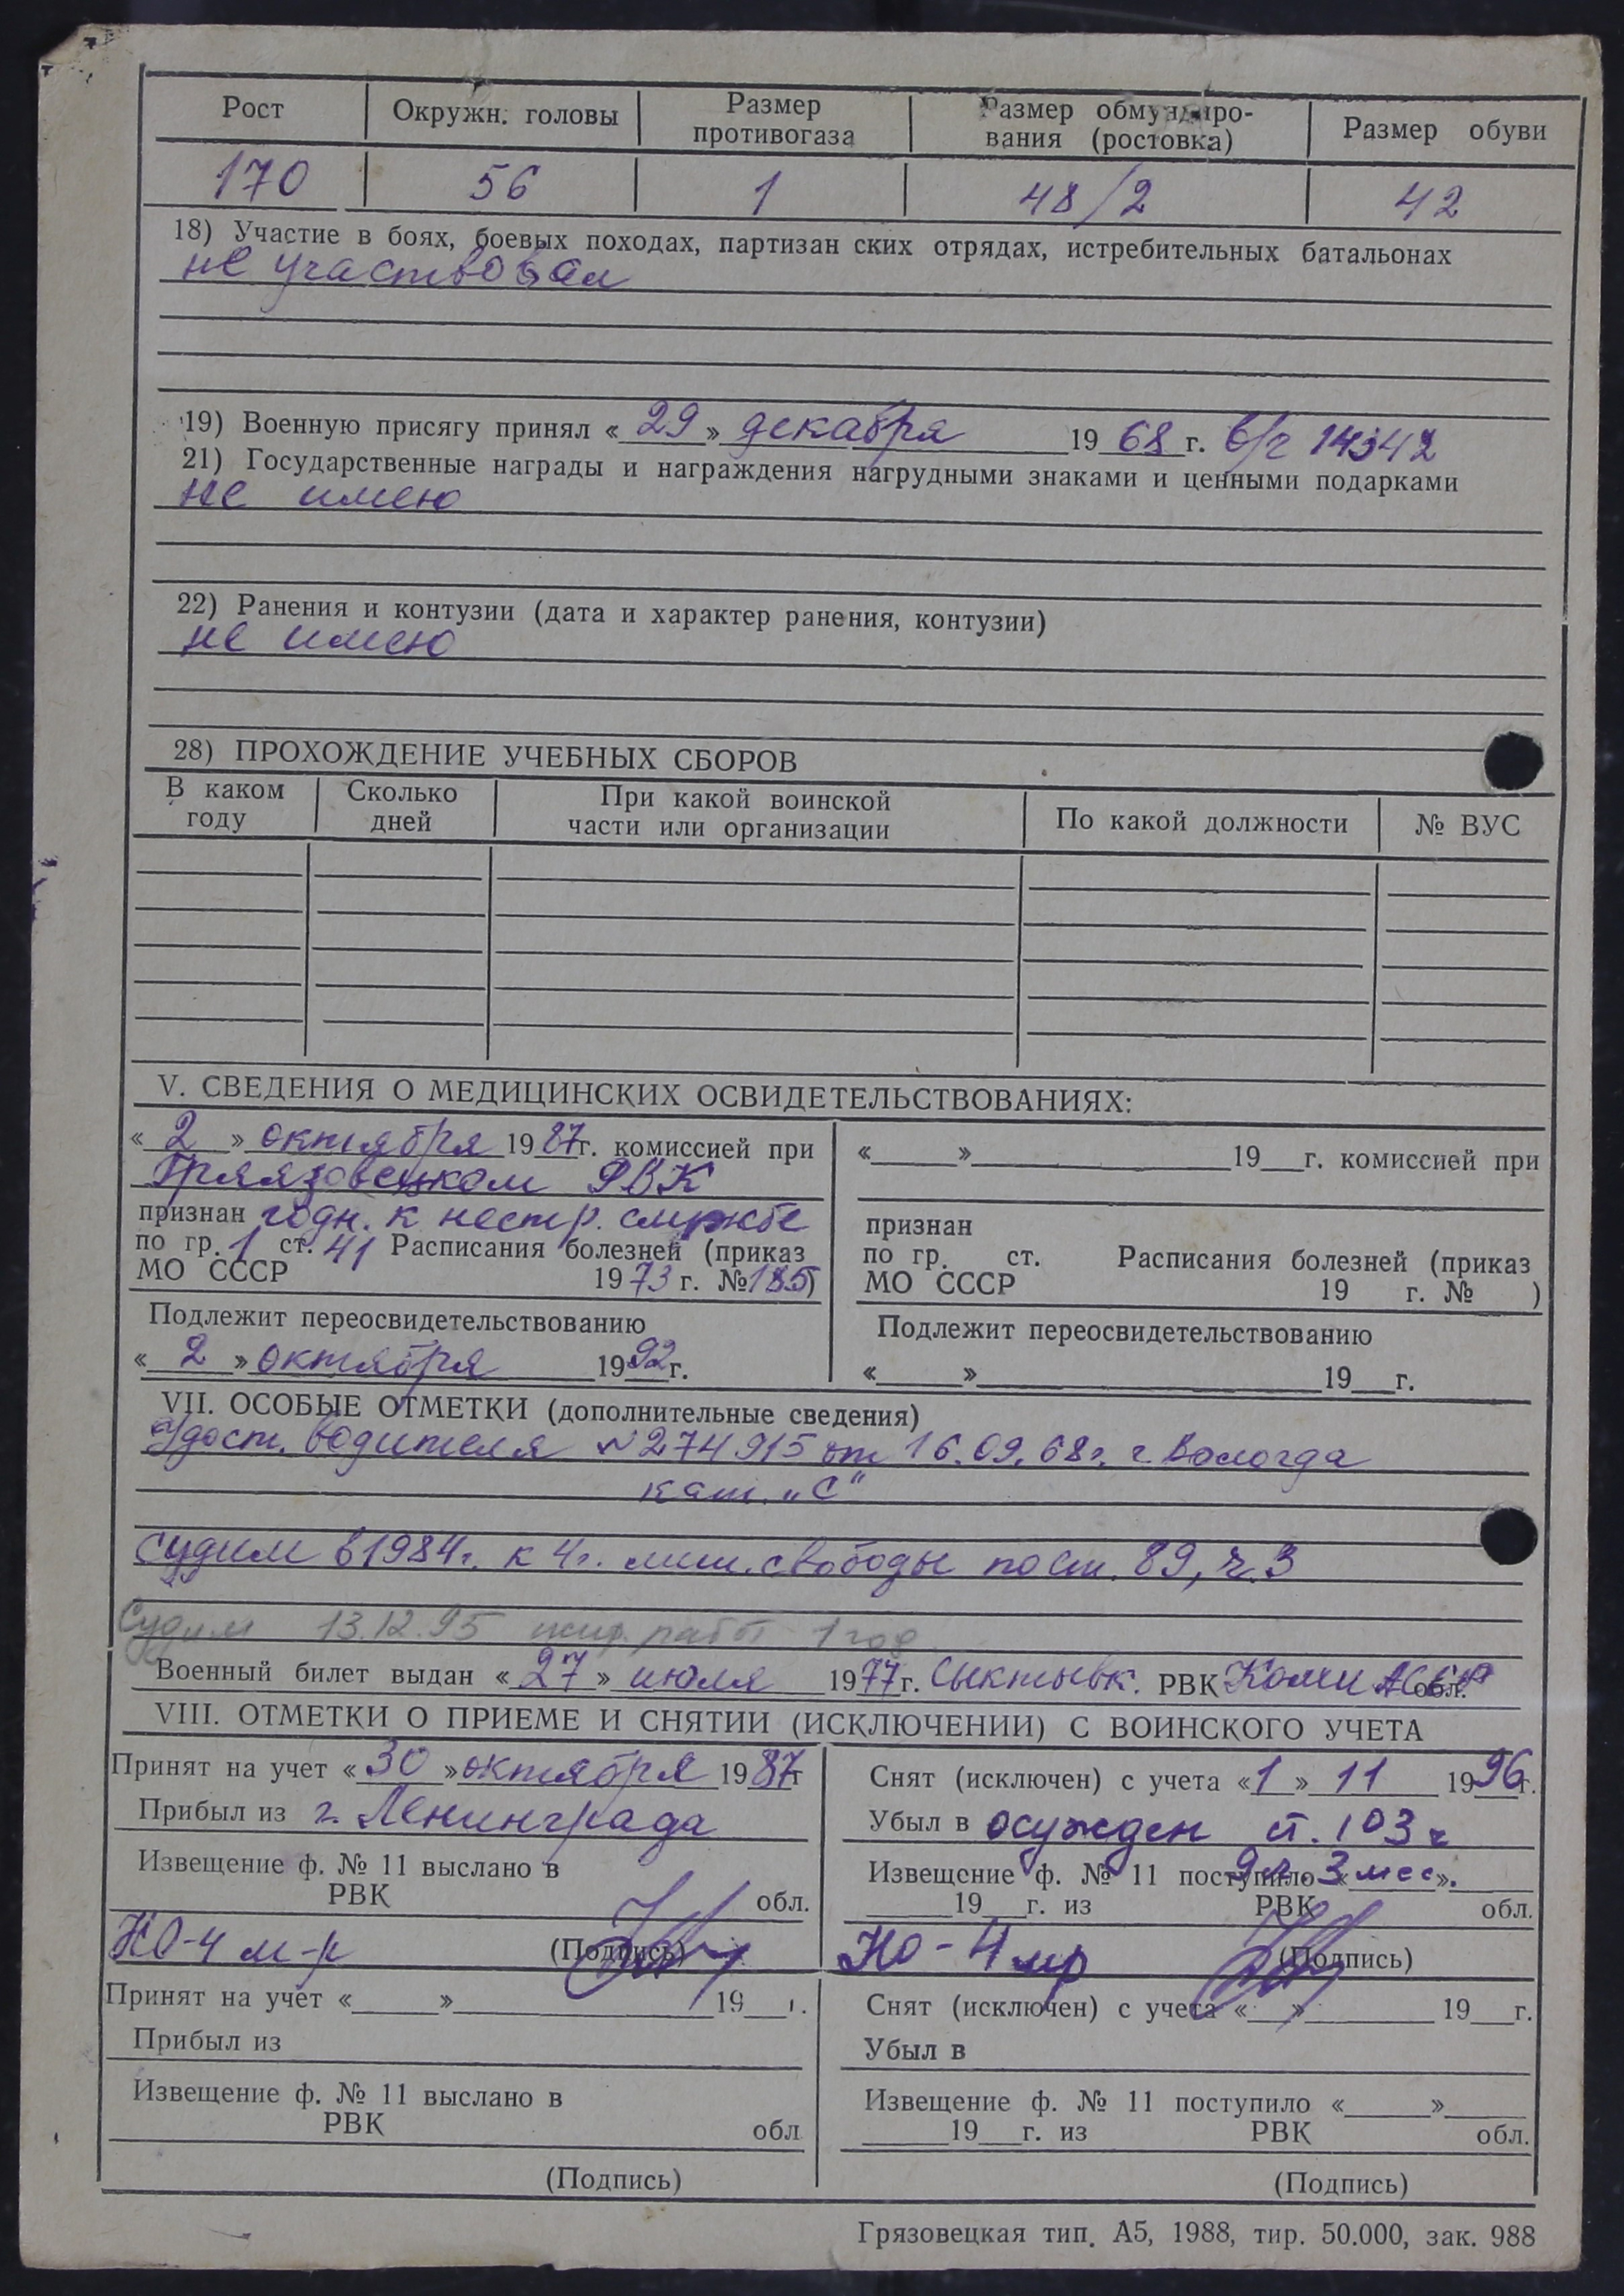 Рост Окружн. головы Размер противогаза Размер обмундиро- вания (ростовка) Размер обуви
170 56 1 48/2 42
18) Участие в боях, боевых походах, партизан ских отрядах, истребительных батальонах
не участвовал
19) Военную присягу принял «29» декабря 1968 г. в/ч 14342
21) Государственные награды и награждения нагрудными знаками и ценными подарками
не имею
22) Ранения и контузии (дата и характер ранения, контузии)
не имею
28) ПРОХОЖДЕНИЕ УЧЕБНЫХ СБОРОВ
В каком году Сколько дней При какой воинской части или организации По какой должности № ВУС
V. СВЕДЕНИЯ О МЕДИЦИНСКИХ ОСВИДЕТЕЛЬСТВОВАНИЯХ:
«2» октября 1987г. комиссией при
Грязовецком РВК
признан годн. к нестр. службе
по гр. 1 ст. 41 Расписания болезней (приказ
МО СССР 1973 г. №185)
Подлежит переосвидетельствованию
«2» октября 1992г.
«___»___19__г. комиссией при
признан
по гр. ст. Расписания болезней (приказ
МО СССР 19 г. № )
Подлежит переосвидетельствованию
«___»___19__г.
VII. ОСОБЫЕ ОТМЕТКИ (дополнительные сведения)
Удост. водителя №274915 от 16.09.68г. г. Вологда
кат. „С"
Судим в 1984г. к 4г. лиш. свободы по ст. 89, ч.3
Судим 13.12.95 испр. работ 1 год
Военный билет выдан «27» июля 1977г. Сыктывк. РВК Коми АССР обл.
VIII. ОТМЕТКИ О ПРИЕМЕ И СНЯТИИ (ИСКЛЮЧЕНИИ) С ВОИНСКОГО УЧЕТА
Принят на учет «30» октября 1987г
Прибыл из г. Ленинграда
Извещение ф. № 11 выслано в
РВК обл.
НО-4 м-р (Подпись)
Снят (исключен) с учета «1» 11 1996г.
Убыл в осужден ст. 103 ч
Извещение ф. № 11 поступило «___». 9 л. 3 мес.
19__г. из РВК обл.
НО-4 мр (Подпись)
Принят на учет «___»___19__г.
Прибыл из
Извещение ф. № 11 выслано в
РВК обл
(Подпись)
Снят (исключен) с учета «___»___19__г.
Убыл в
Извещение ф. № 11 поступило «___»___
19__г. из РВК обл.
(Подпись)
Грязовецкая тип. А5, 1988, тир. 50.000, зак. 988